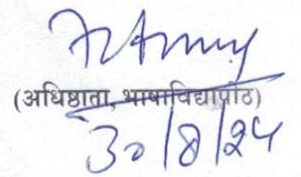 (अधिष्ठाता, भाषाविद्यापीठ)
30/8/24